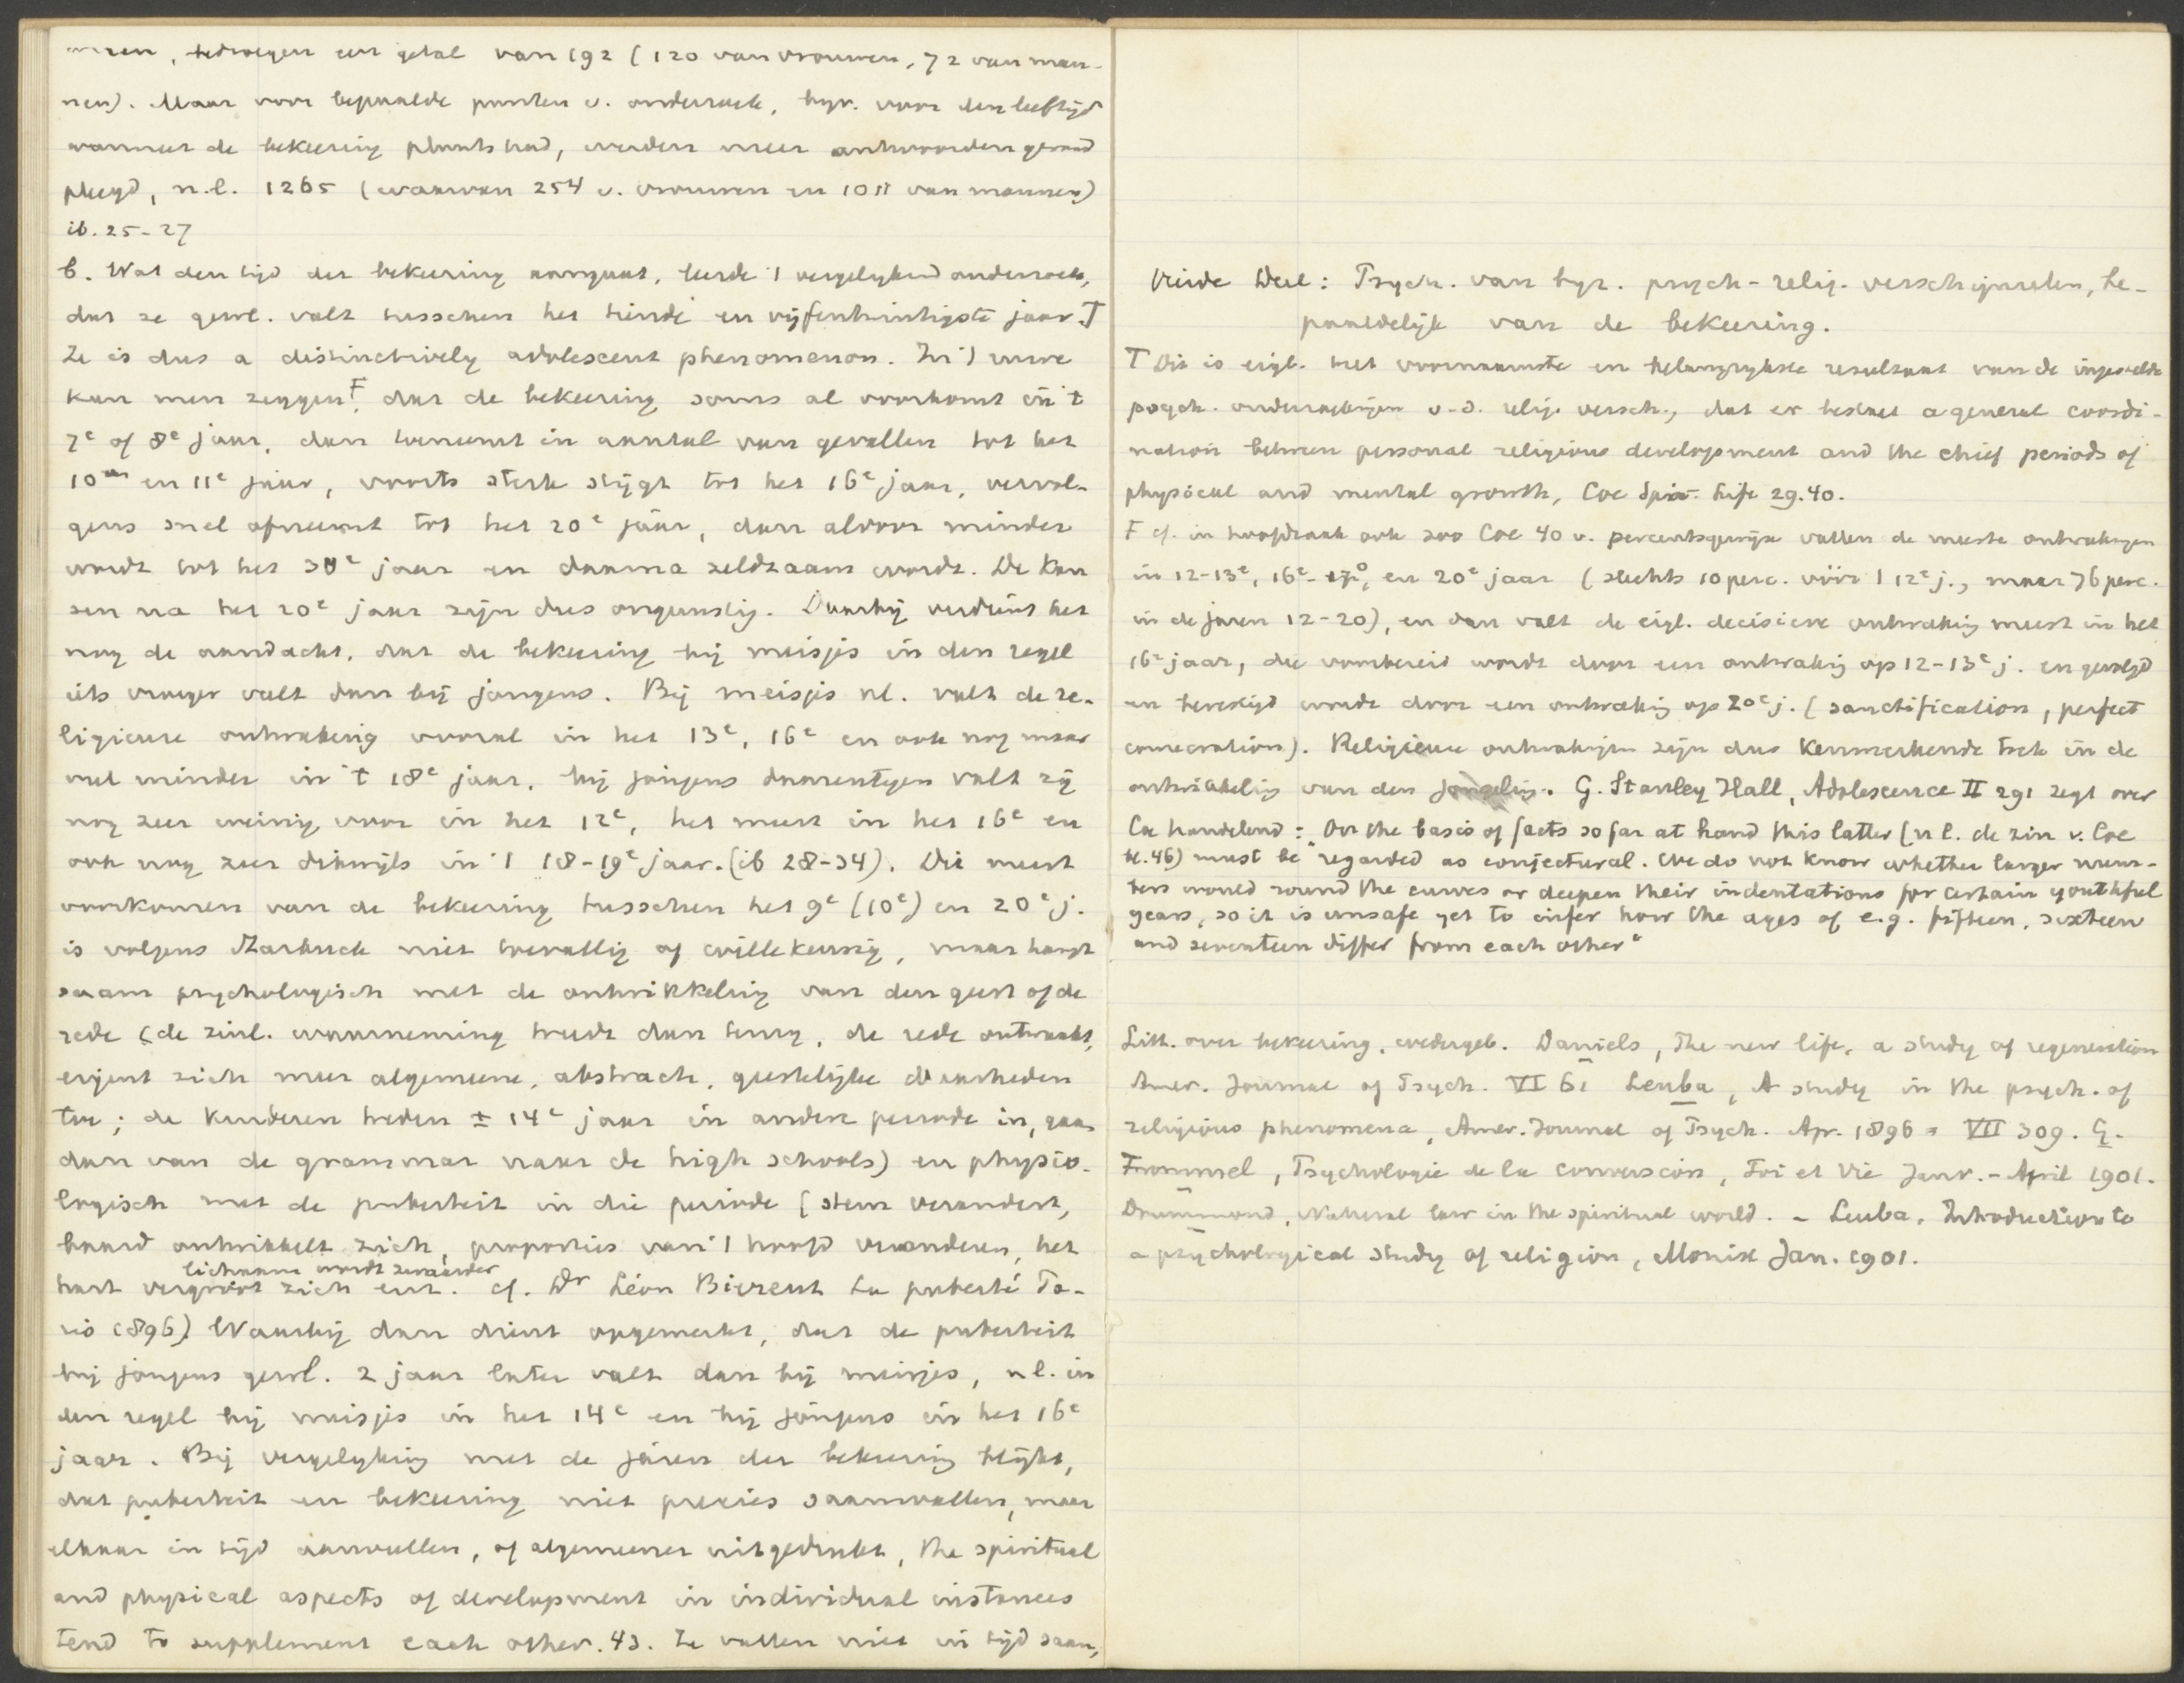 bedroegen een getal van 192 (120 van vrouwen, 72 van man-
nen). Maar voor bepaalde punten v. onderzoek, byv. voor den leeftijd
wanneer de bekeering plaats had, werden meer antwoorden geraad
pleegd, n.l. 1265 (waarvan 254 v. vrouwen en 1011 van mannen)
ib. 25-27
b. Wat den tijd der bekeering aangaat, leerde 't vergelijkend onderzoek,
dat ze gewl. valt tusschen het tiende en vijfentwintigste jaar. T
Ze is dus a distinctively adolescent phenomenon. In 't ruwe
kan men zeggen F, dat de bekeering soms al voorkomt in 't
7e of 8e jaar, dan toeneemt in aantal van gevallen tot het
10de en 11e jaar, voorts sterk stijgt tot het 16e jaar, vervol-
gens snel afneemt tot het 20e jaar, dan alvoor minder
wordt tot het 30e jaar en daarna zeldzaam wordt. De kan
sen na het 20e jaar zijn dus ongunstig. Daarbij verdient het
nog de aandacht, dat de bekeering bij meisjes in den regel
iets vroeger valt dan bij jongens. Bij meisjes nl. valt de re-
ligieuse ontwaking vooral in het 13e, 16e en ook nog maar
veel minder in 't 18e jaar, bij jongens daarentegen valt zij
nog zeer weinig voor in het 12e, het meest in het 16e en
ook nog zeer dikwijls in 't 18-19e jaar. (ib 28-34). Dit meest
voorkomen van de bekeering tusschen het 9e (10e) en 20e j.
is volgens Starbuck niet toevallig of willekeurig, maar hangt
saam psychologisch met de ontwikkeling van den geest of de
rede (de zinl. waarneming treedt dan terug, de rede ontwaakt,
eigent zich meer algemeene, abstracte, geestelijke waarheden
toe; de kinderen treden ± 14e jaar in andere periode in, gaan
dan van de grammar naar de high schools) en physio-
logisch met de puberteit in die periode (stem verandert,
baard ontwikkelt zich, proporties van 't hoofd veranderen, het
lichaam wordt zwaarder
hart vergroot zich enz. cf. Dr Léon Bierent La puberté Pa-
ris 1896). Waarbij dan dient opgemerkt, dat de puberteit
bij jongens gewl. 2 jaar later valt dan bij meisjes, nl. in
den regel bij meisjes in het 14e en bij jongens in het 16e
jaar. Bij vergelijking met de jaren der bekeering blijkt,
dat puberteit en bekeering niet precies saamvallen, maar
elkaar in tijd aanvullen, of algemeener uitgedrukt, the spiritual
and physical aspects of development in individual instances
tend to supplement each other. 43. Ze vallen niet in tijd saam,
Vierde Deel: Psych. van byz. psych-relig. verschijnselen, be-
paaldelijk van de bekeering.
T Dit is eigl. het voornaamste en belangrijkste resultaat van de ingestelde
psych. onderzoekingen v.d. relig. versch., dat er bestaat a general coordi-
nation between personal religious development and the chief periods of
physical and mental growth, Coe Spir. Life 29.40.
F cf. in hoofdzaak ook zoo Coe 40 v. percentsgewijze vallen de meeste ontwakingen
in 12-13e, 16e-17e, en 20e jaar (slechts 10 perc. vóór 't 12e j., maar 76 perc.
in de jaren 12-20), en dan valt de eigl. decisieve ontwaking meest in het
16e jaar, die voorbereid wordt door een ontwaking op 12-13e j. en gevolgd
en bevestigd wordt door een ontwaking op 20e j. (sanctification, perfect
consecration). Religieuse ontwakingen zijn dus kenmerkende trek in de
ontwikkeling van den jongeling. G. Stanley Hall, Adolescence II 291 zegt over
Coe handelend: "On the basis of facts so far at hand this latter (nl. de zin v. Coe
bl. 46) must be regarded as conjectural. We do not know whether larger num-
bers would round the curves or deepen their indentations for certain youthful
years, so it is unsafe yet to infer how the ages of e.g. fifteen, sixteen
and seventeen differ from each other"
Litt. over bekeering, wedergeb. Daniels, The new life, a study of regeneration
Amer. Journal of Psych. VI 61 Leuba, A study in the psych. of
religious phenomena, Amer. Journal of Psych. Apr. 1896 = VII 309. G.
Frommel, Psychologie de la conversion, Foi et Vie Janv. - April 1901.
Drummond, Natural law in the spiritual world. - Leuba, Introduction to
a psychological study of religion, Monist Jan. 1901.